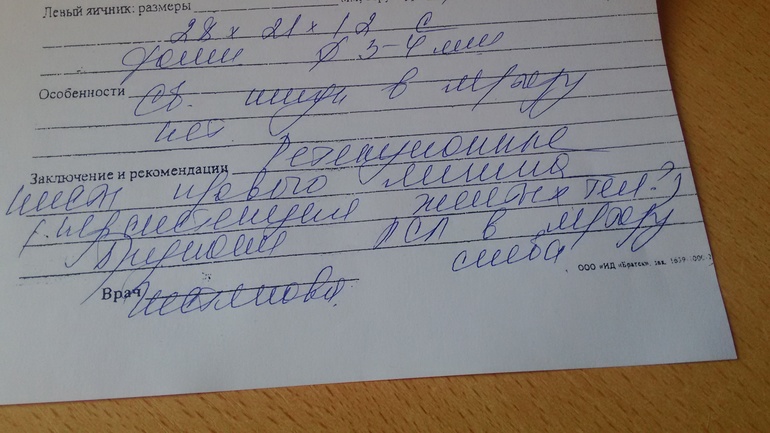 Левый яичник: размеры
28 x 21 x 12 с
фолли ∅ 3-4 мм
Особенности св. жидк в м/тазу
нет
Заключение и рекомендации Ретенционные
кисты правого яичника
(персистенция желтых тел?)
ПСП в м/тазу
слева
Врач
ООО «ИД «Братск» зак. 1639